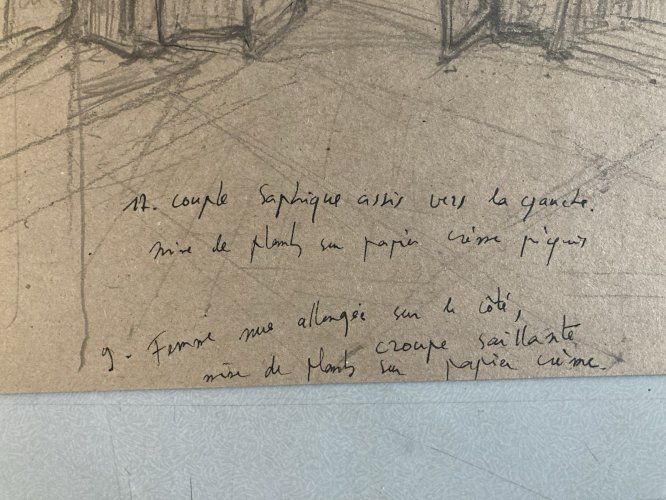 17. couple saphique assis vers la gauche.
mine de plomb sur papier crème piqûres
9. Femme nue allongée sur le côté,
croupe saillante
mine de plomb sur papier crème.